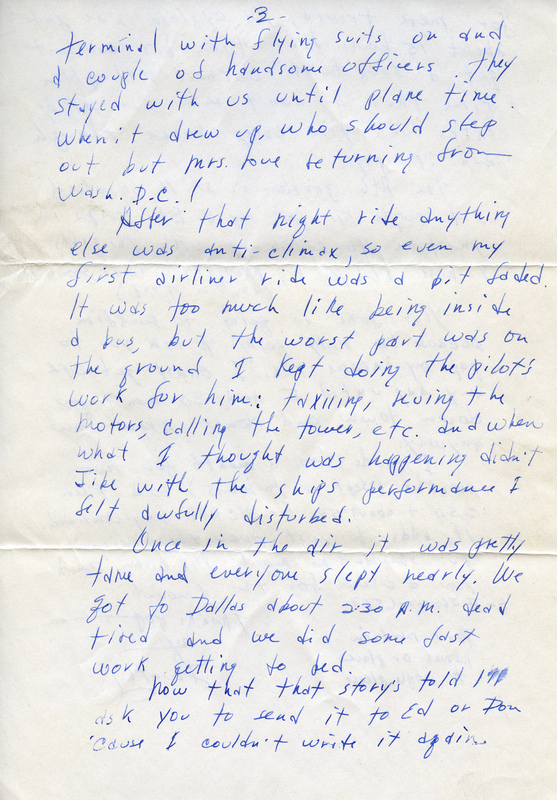 -3-
terminal with flying suits on and
a couple of handsome officers. They
stayed with us until plane time.
When it drew up, who should step
out but Mrs. Love returning from
Wash. D.C.!
After that night ride anything
else was anti-climax, so even my
first airliner ride was a bit faded.
It was too much like being inside
a bus, but the worst part was on
the ground I kept doing the pilot's
work for him: taxiiing, reving the
motors, calling the tower, etc. and when
what I thought was happening didn't
jike with the ships performance I
felt awfully disturbed.
Once in the air it was pretty
tame and everyone slept nearly. We
got to Dallas about 2:30 A.M. dead
tired and we did some fast
work getting to bed.
Now that that story's told I'll
ask you to send it to Ed or Don
'cause I couldn't write it again.